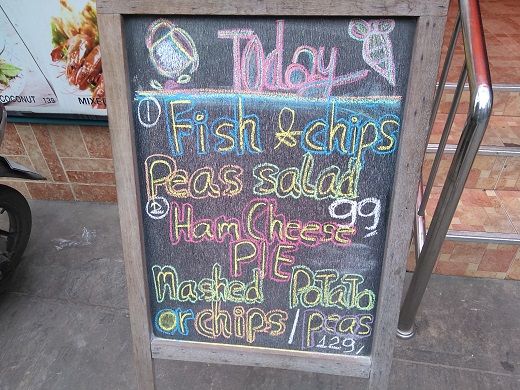 COCONUT 139
MIXE
Today
① Fish & chips
Peas salad
99
② Ham Cheese
PIE
Mashed Potato
or chips/peas
129/